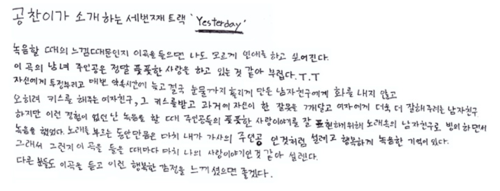 공찬이가 소개하는 세번째 트랙 'Yesterday'
녹음할 때의 느낌때문인지 이곡을 들으면 나도 모르게 연애를 하고 싶어진다.
이 곡의 남녀 주인공은 정말 풋풋한 사랑을 하고 있는 것 같아 부럽다. T.T
자신에게 투정부리고 매번 약속시간에 늦고 결국 눈물까지 흘리게 만든 남자친구에게 화를 내지 않고
오히려 키스를 해주는 여자친구, 그 키스를받고 과거에 자신이 한 잘못을 깨닫고 여자에게 더욱 더 잘해주려는 남자친구
하지만 이런 경험이 없던 난 녹음을 할 때 주인공들의 풋풋한 사랑이야기를 잘 표현해내기위해 노래속의 남자친구로 빙의 하면서
녹음을 했었다. 노래를 부르는 동안만큼은 마치 내가 가사의 주인공 인것처럼 설레고 행복하게 녹음한 기억이 있다.
그래서 그런지 이 곡을 들을 때마다 마치 나의 사랑이야기인것 같아 설렌다.
다른 분들도 이곡을 듣고 이런 행복한 감정을 느끼셨으면 좋겠다.